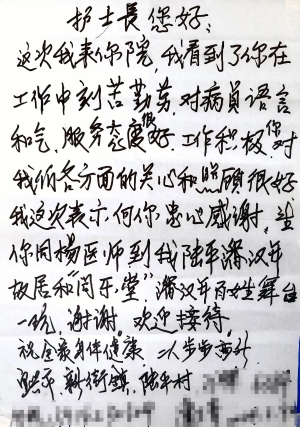 护士長您好:
这次我来你院,我看到了你在
工作中刻苦勤劳,对病員语言
和气,服务态度很好,工作积极,你对
我们各方面的关心和照顾很好
我这次表示向你忠心感谢。
你同楊医师到我陆平潘汉年
故居和“同乐堂”潘汉年百姓舞台
一玩,谢谢。欢迎接待。
祝全家身体健康 步步高升
新街鎮,陆平村